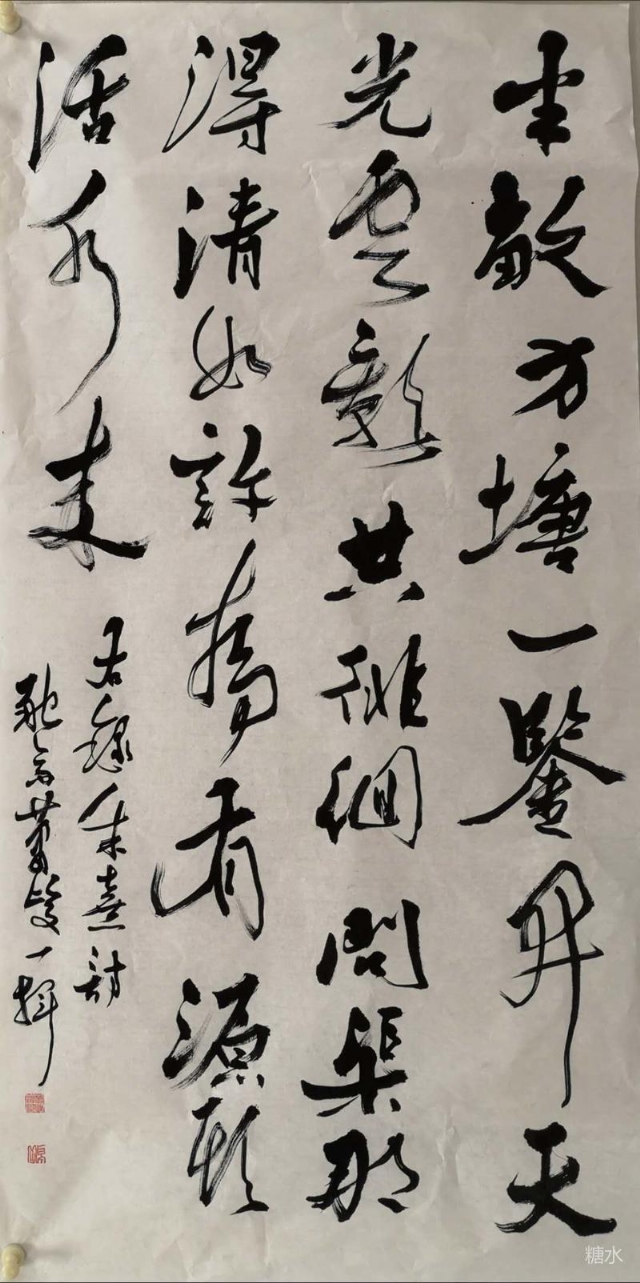 半畝方塘一鑒开天
光雲影共徘徊問渠那
得清如許為有源頭
活水来
右録朱熹詩
一揮
糖水